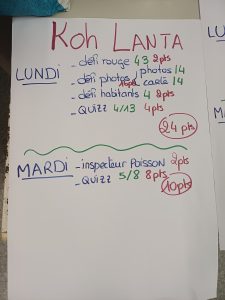 KOH LANTA
LUNDI
- défi rouge 43 2pts
- défi photos / photos 14
10pts carte 14
- défi habitants 4 2pts
- QUIZZ 4/13 4pts
24 pts
MARDI - inspecteur Poisson 2pts
- QUIZZ 5/8 8pts
10pts